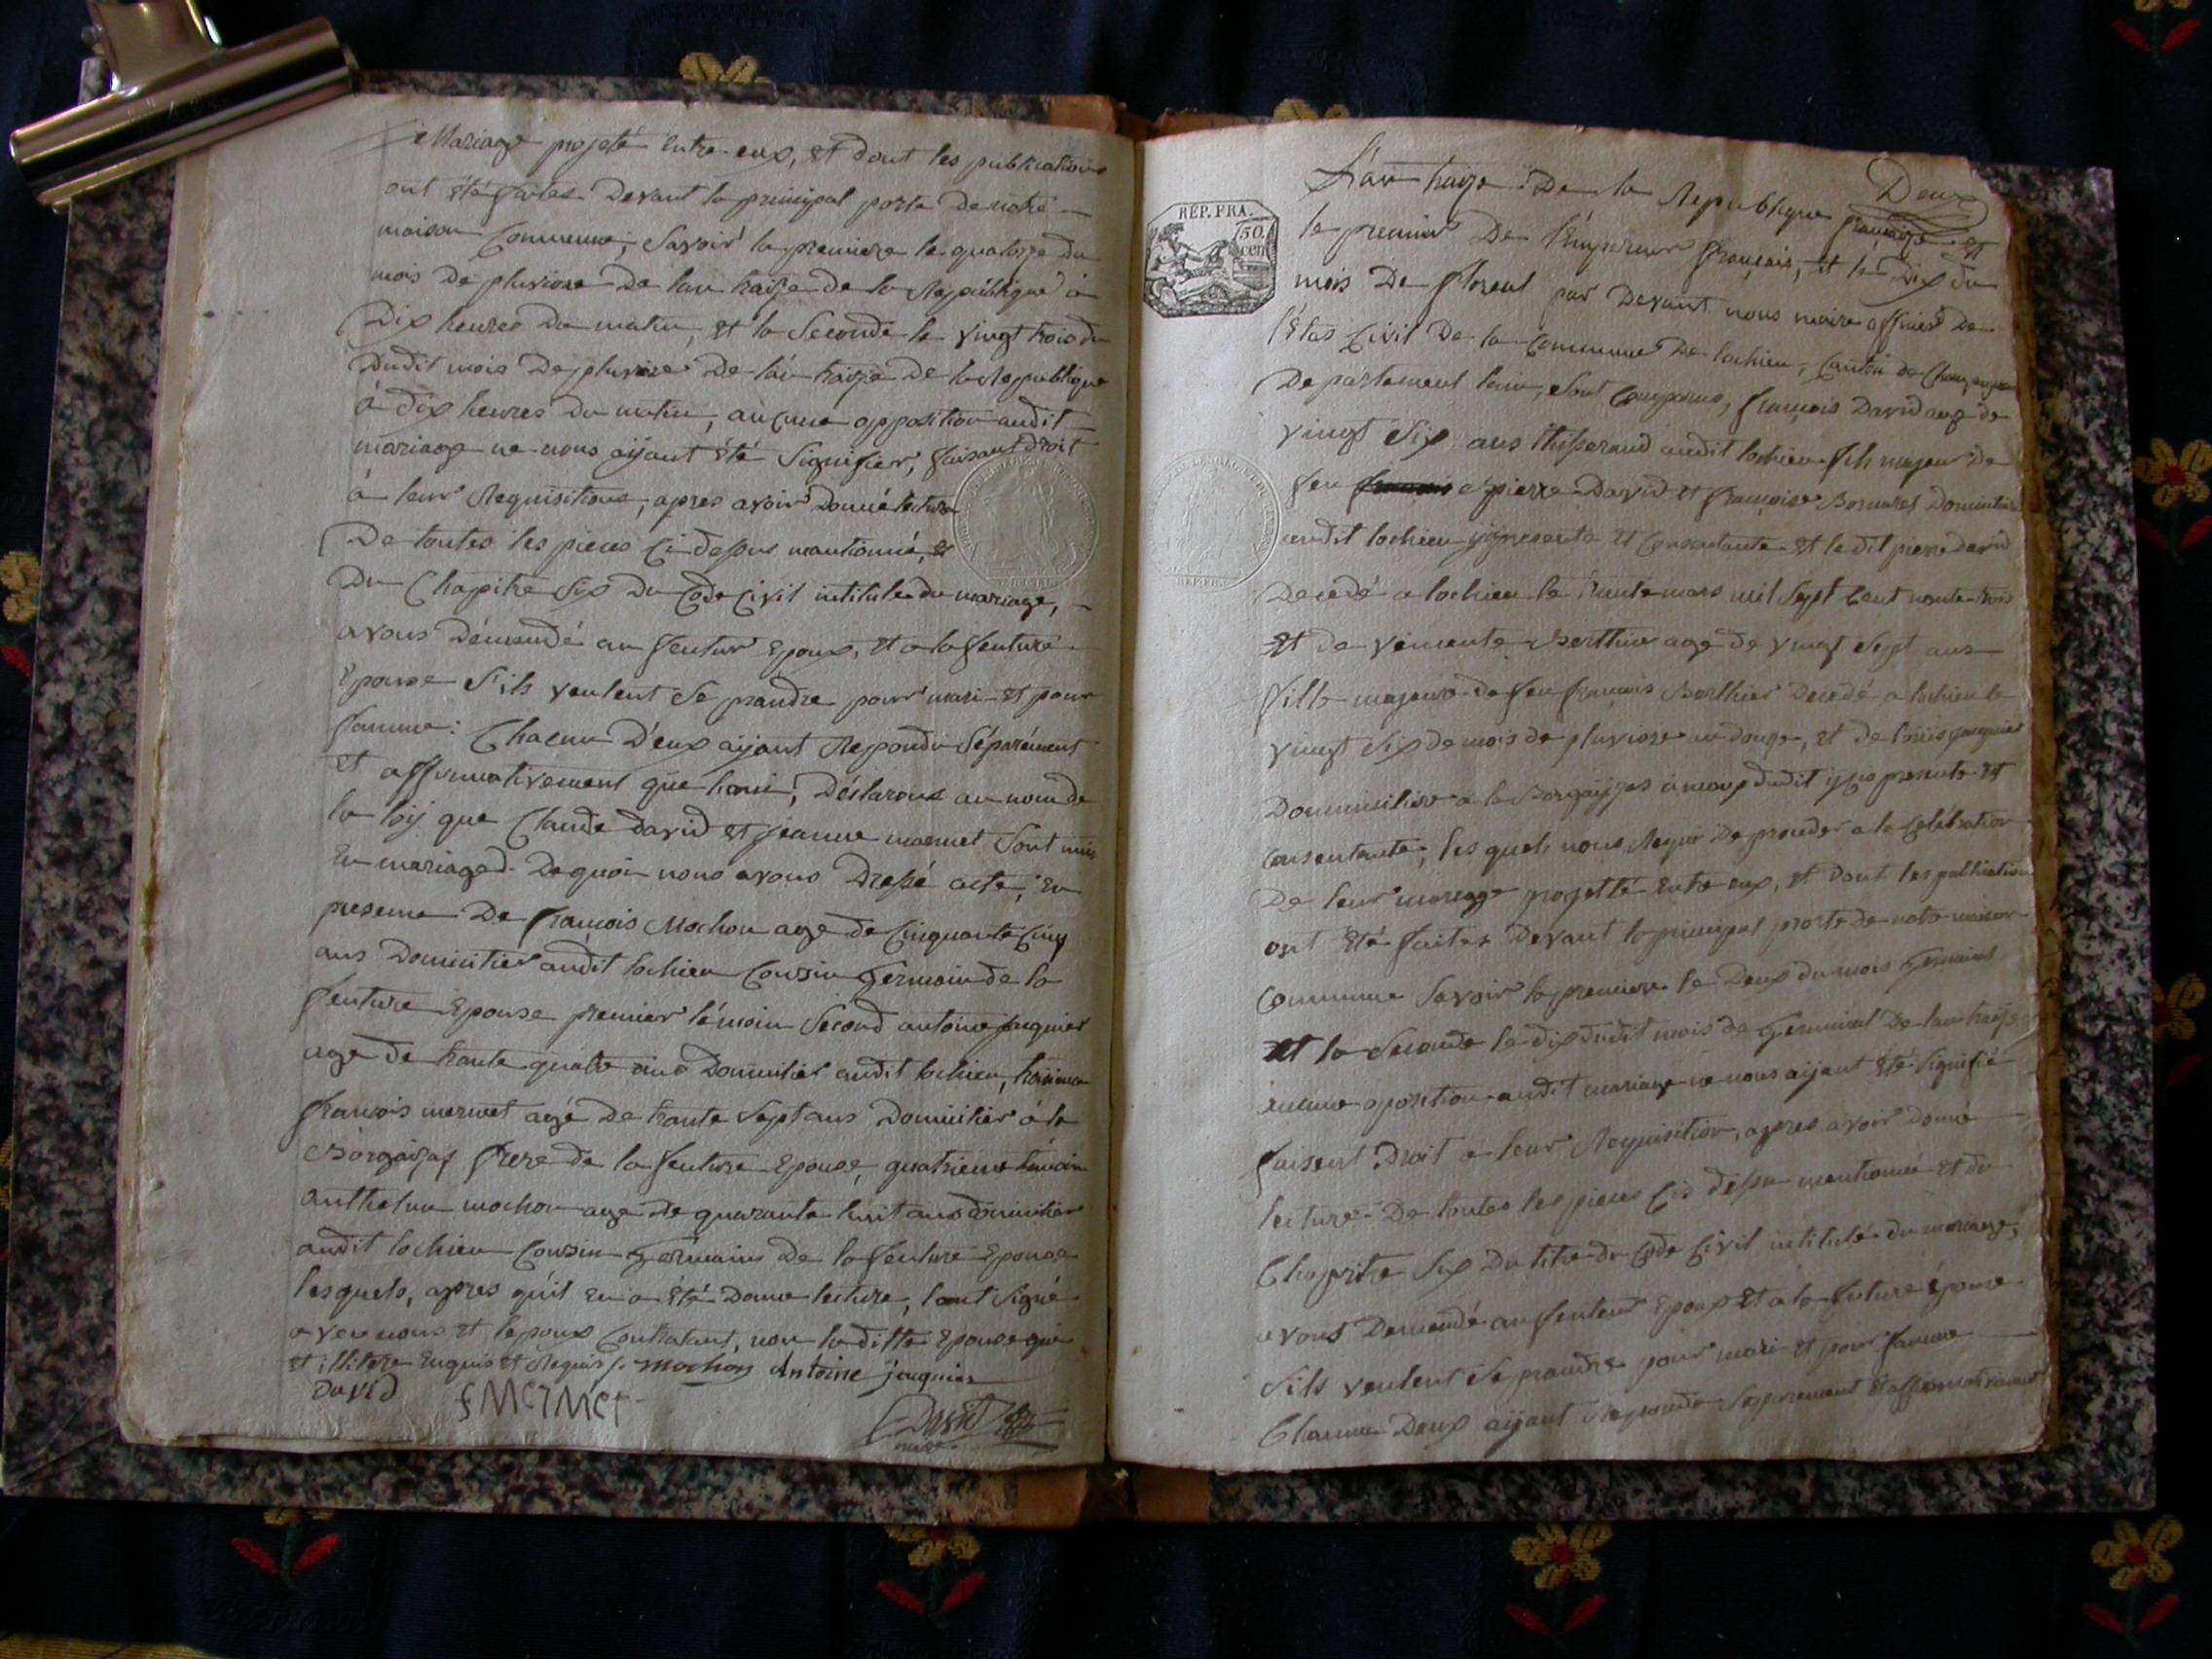 Mariage projeté Entre-eux, et dont les publications
ont été faites Devant la principal porte De notre
maison Commune; Savoir la premiere le quatorze du
mois De pluviose De lan traize de la Republique à
Dix heures Du matin, et la Seconde le vingt trois du
Dudit mois De pluviose De lán traize De la Republique
à dix heures Du matin, aucune opposition audit
mariage ne nous aijant été Signifier, faisant Droit
à leur Requisitions, apres avoir Donné lecture
De toutes les pieces Ci dessus mantionné, et
Du Chapitre Six Du Code Civil intitulé du mariage,
avons Démandé au feutur Epoux, Et a la feuture
Epouse S'ils veulent Se prandre pour mari Et pour
famme: Chacun D'eux aijant Repondu Séparément
Et affirmativement que Déclarons au nom de
la loij que Claude David et Jeanne mermet Sont unis
En mariage. De quoi nous avons Dressé acte, En
presence De François Mochon age de Cinquante Cinq
ans Domicilier audit lochieu Cousin Germain de la
feuture Epouse premier témoin Second antoine Jaquier
age de trante quatre ans Domicilier audit lochieu,
francois mermet agé De trante Sept ans Domicilier à la
frere de la feuture Epouse, quatrieme témoin
anthelme mochon age De quarante huit ans domicilier
audit lochieu Cousin Germains De la feuture Epouse
lesquels, apres qu'il En a Été Donne lecture, lont Signé
avec nous Et lepoux Contratant, non la ditte Epouse qui
Et illitere Enquis et Requis /. mochon Antoine jaquier
David fMerMet
David
maire
Deux
REP. FRA.
50
cen
L'an traize De la Republique française et
le premier De l'Empereur français, et le Dix du
mois De floreal par Devant nous maire officier De
l'Etas Civil De la Commune De lochieu, Canton de Champagne
Departement lain, Sont Comparus, françois David age de
vingt Six ans thisserand audit lochieu fils majeur De
feu pierre David et françoise Domicilier
audit lochieu presente Et Consentante Et le dit pierre david
Decedé a lochieu le trante mars mil Sept Cent
Et de Berthier age de vingt Sept ans
fille majeure de feu francois Berthier Decedé a lochieu le
vingt Six de mois de pluviose an douze, et de
Domicilier a la dudit presente Et
Consentante; les quels nous Requis De proceder a la Célébration
De leur mariage projetté Entre eux, Et Dont les publication
ont Eté faites Devant la principal porte de notre maison
Commune Savoir la premiere le Deux du mois Germinal
et la Seconde le dix dudit mois de Germinal De lan traize
aucune oposition audit mariage ne nous aijant Eté Signifié
faisent Droit a leur Requisition, apres avoir donné
lecture De toutes les pieces Cis dessu mentionné et du
Chapitre Six Du titre du Code Civil intitulé du mariage,
avons Demandé au feuteur Epoux Et a la future Epouse
Sils veulent Se prandre pour mari Et pour famme
Chacun Deux aijant Repondu Separement Et affirmativement